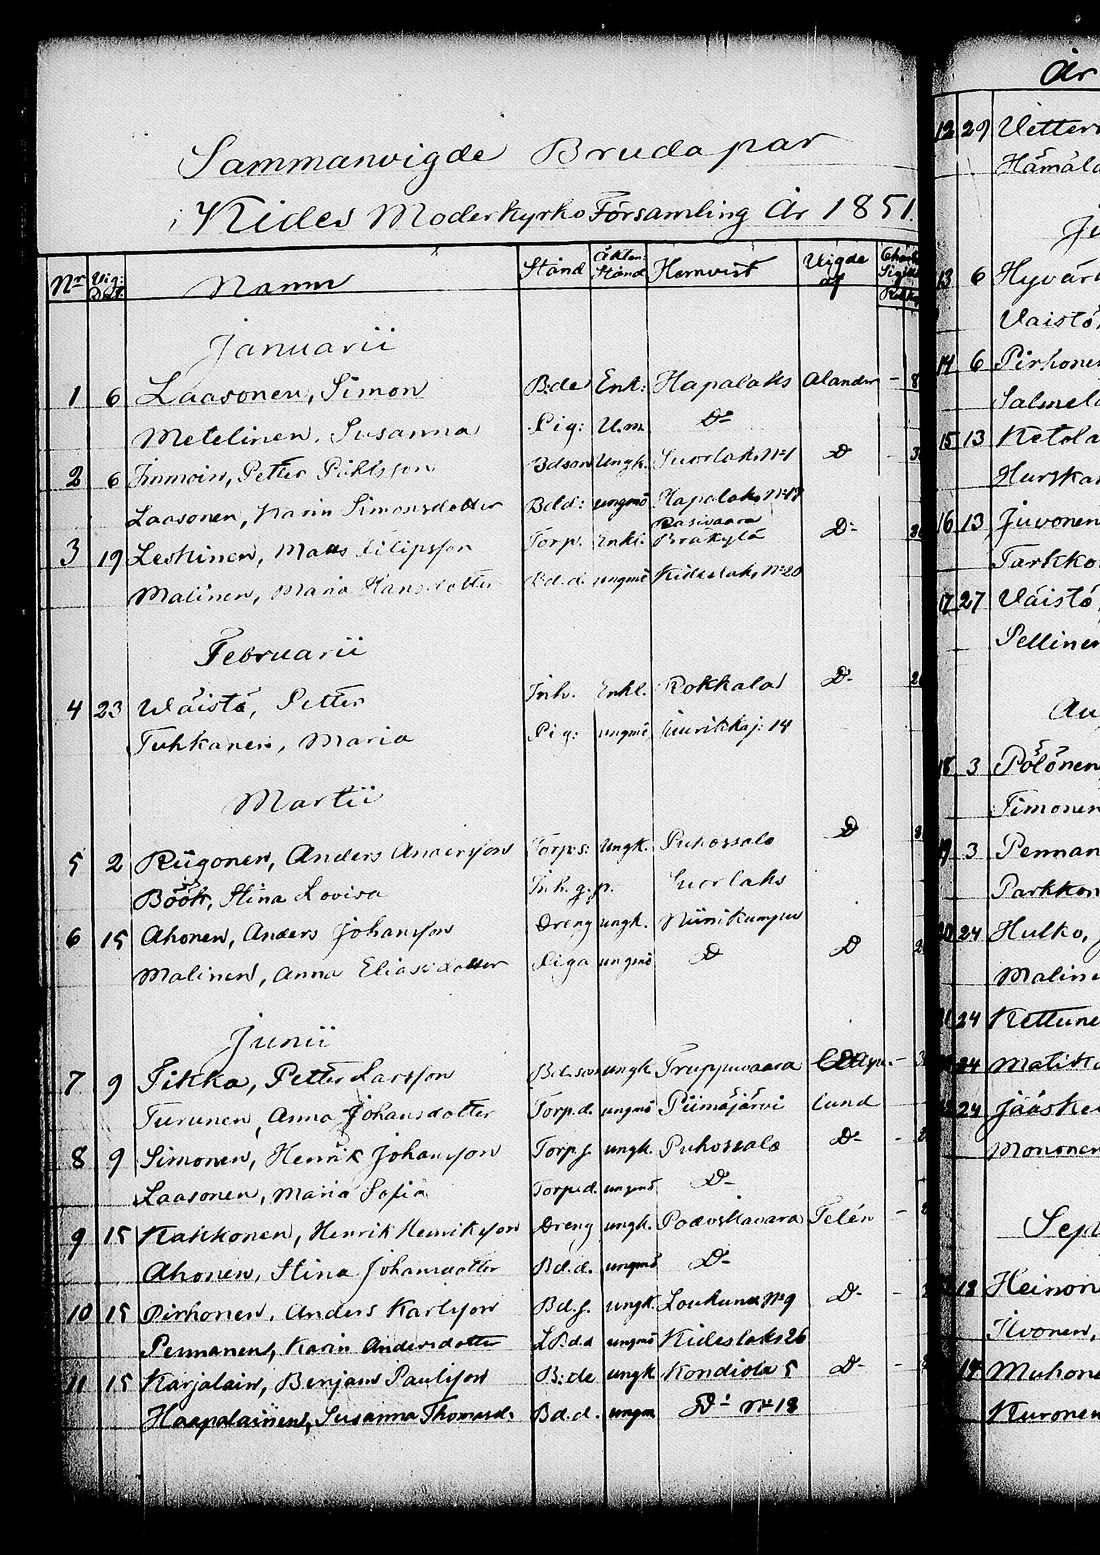 Sammanvigde Brudapar
i Kides Moderkyrko Församling År 1851.
Nr Vig: Dat. Namn Stånd Äkten: Stånd Hemvist Vigde af
Januarii
1 6 Laasonen, Simon B:de Enk: Hapalaks Alander -
Metelinen, Susanna Pig: U.m. D-
2 6 Petter Påhlsson Bdson Ungk. Suorlaks N:1 D
Laasonen, Karin Simonsdotter Bdd: ungmö Hapalaks N:17
Rasivaara
3 19 Leskinen, Matts Filipsson Torp. Enkl. Bråkylä D-
Malinen, Maria Hansdotter Bd.d. ungmö Kideslaks N:20
Februarii
4 23 Wäistö, Petter Inh. Enkl. Rokkala D-
Tuhkanen, Maria Pig: ungmö 14
Martii
5 2 Riigonen, Anders Andersson Torps. Ungk. Puhossalo D
Böök, Stina Lovisa Inh. g. p. Suorlaks
6 15 Ahonen, Anders Johansson Dreng ungk. Niinikumpu
Malinen, Anna Eliasdotter Piga ungmö D D
Junii
7 9 Tikka, Petter Larsson Bd.son ungk Truppuvaara
Turunen, Anna Johansdotter Torp.d. ungmö Piimäjärvi Lund
8 9 Simonen, Henrik Johansson Torp.s. ungk. Puhossalo D- -
Laasonen, Maria Sofia Torp.d. ungmö D-
9 15 Kakkonen, Henrik Henriksson Dreng ungk. Potoskavara Telén -
Ahonen, Stina Johansdotter Bd.d. ungmö D-
10 15 Pirhonen, Anders Karlsson Bd.s. ungk. Loukunu N:9 D- -
Pennanen, Karin Andersdotter ungmö Kideslaks 26
11 15 Karjalain, Benjam Paulsson B:de ungk Kondiola 5 D- -
Haapalainen, Susanna Thomasd: Bd.d. ungm D- N:18
År
12 29
Hämälä
Ju
13 6 Hyvär
Vaistö
14 6 Pirhonen
Salmela
15 13 Ketola
Hurska
16 13 Juvonen
Tarkko
17 27 Väistö,
Pellinen
Au
18 3 Pölönen
Timonen
19 3 Pennan
Parkkon
20 24 Hulko,
Maline
24 Kettune
24 Matika
24 Jääske
Mononen
Sept
12 Heinon
Ilvonen,
14 Muhone
Kuronen